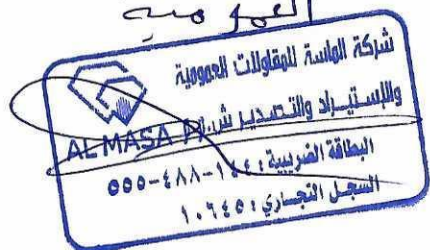 العمومية
شركة الماسة للمقاولات العمومية
والإستيراد والتصدير ش.م.م
AL MASA
البطاقة الضريبية : ١٤٤-٤٨٨-٥٥٥
السجل التجاري : ١٠٦٤٥